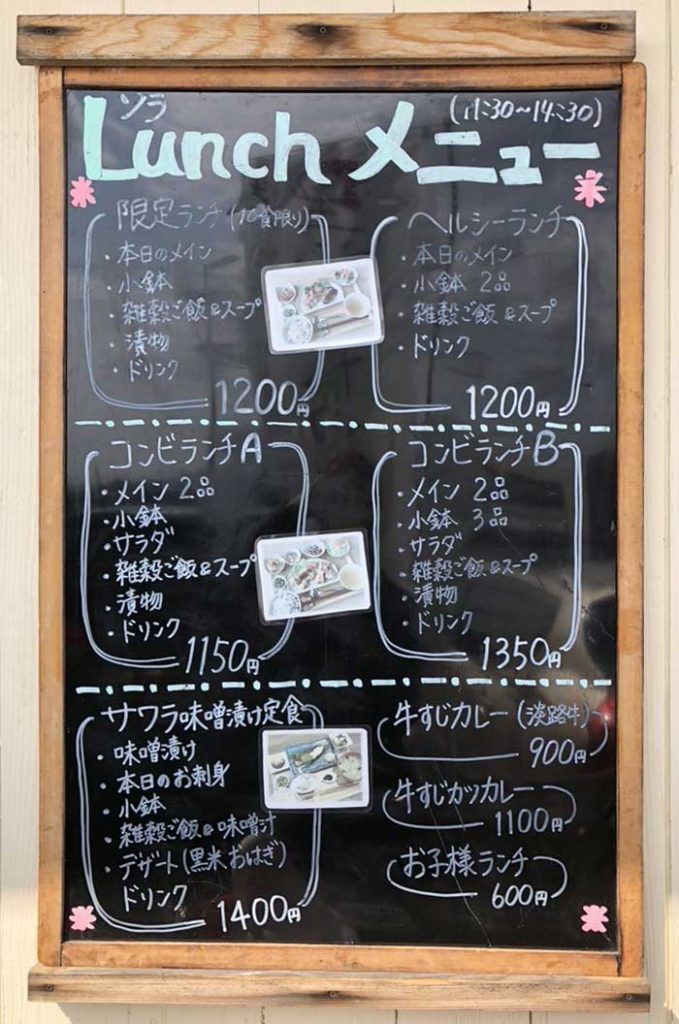 ソラ
(11:30~14:30)
Lunch メニュー
限定ランチ(10食限り)
・本日のメイン
・小鉢
・雑穀ご飯&スープ
・漬物
・ドリンク
1200円
ヘルシーランチ
・本日のメイン
・小鉢 2品
・雑穀ご飯&スープ
・ドリンク
1200円
コンビランチA
・メイン 2品
・小鉢
・サラダ
・雑穀ご飯&スープ
・漬物
・ドリンク
1150円
コンビランチB
・メイン 2品
・小鉢 3品
・サラダ
・雑穀ご飯&スープ
・漬物
・ドリンク
1350円
サワラ味噌漬け定食
・味噌漬け
・本日のお刺身
・小鉢
・雑穀ご飯&味噌汁
・デザート(黒米おはぎ)
ドリンク
1400円
牛すじカレー(淡路牛)
900円
牛すじカツカレー
1100円
お子様ランチ
600円